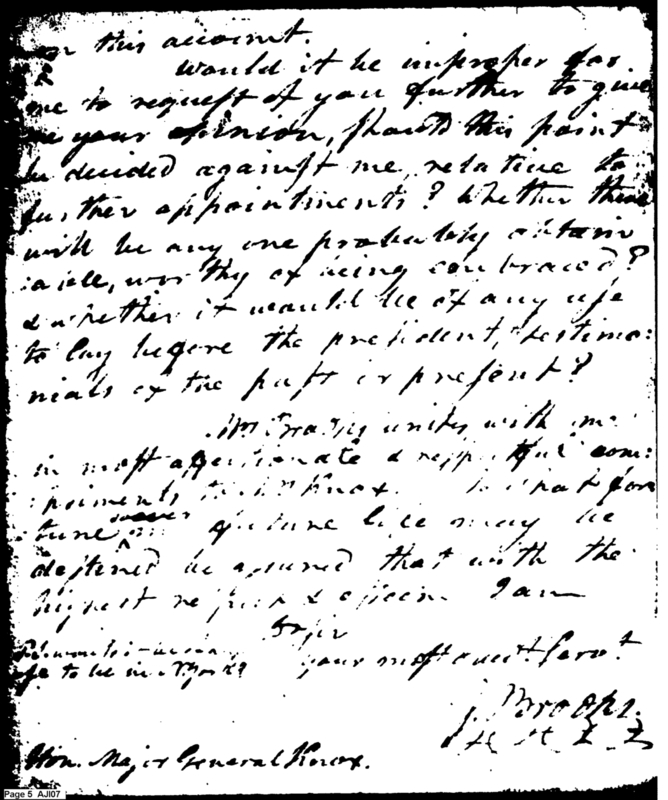 on this account.
Would it be improper for
me to request of you further to give
me your opinion, should this point
be decided against me, relative to
further appointments? Whether there
will be any one probably obtain
able, worthy of being embraced?
& whether it would be of any use
to lay before the president, testimo:
nials of the past or present?
Mrs. Brooks unites with me
in most affectionate & respectful com:
pliments to Mrs Knox. To what for
tune soever my future life may be
destined be assured that with the
highest respect & esteem I am
Dr Sir
to be in N York?
your most obedt. Servt.
J Brooks.
Hon. Major General Knox.
Page 5 AJI07